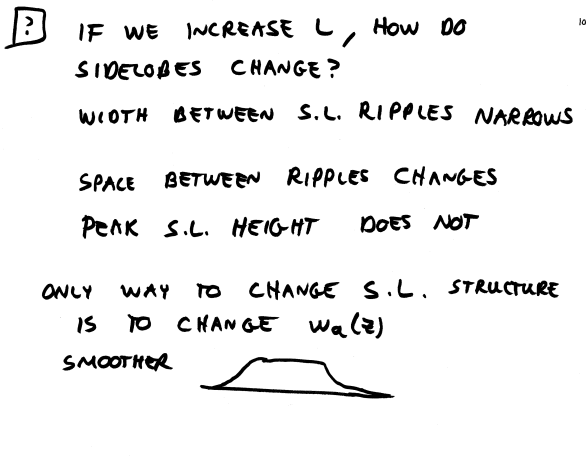 ? IF WE INCREASE L, HOW DO
10
SIDELOBES CHANGE?
WIDTH BETWEEN S.L. RIPPLES NARROWS
SPACE BETWEEN RIPPLES CHANGES
PEAK S.L. HEIGHT DOES NOT
ONLY WAY TO CHANGE S.L. STRUCTURE
IS TO CHANGE wa(z)
SMOOTHER